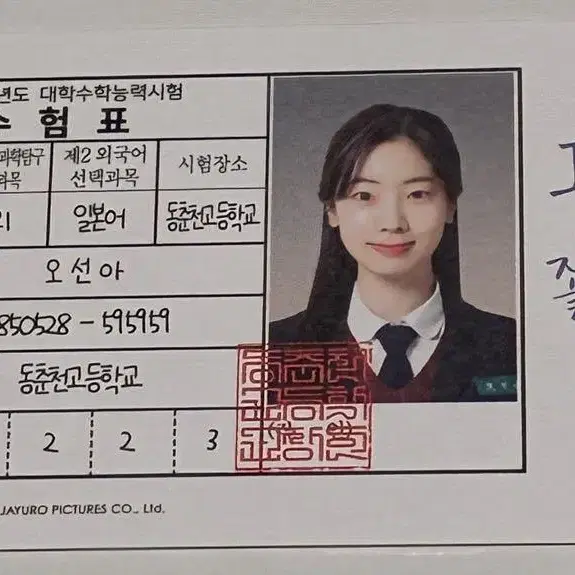 년도 대학수학능력시험
수 험 표
과학탐구 제2외국어 시험장소
과목 선택과목
일본어 동춘천고등학교
오선아
850528 - 595959
동춘천고등학교
2 2 3
JAYURO PICTURES CO., Ltd.